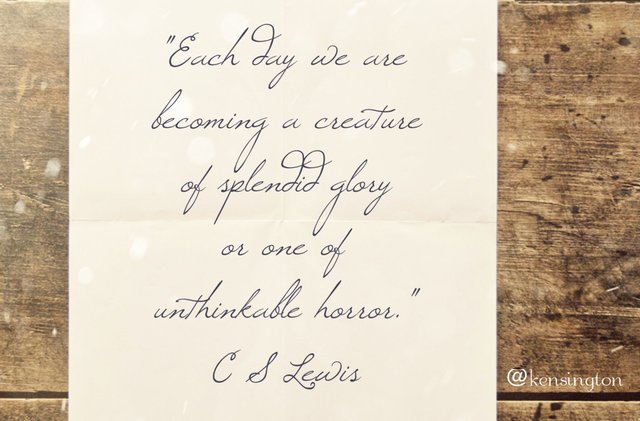 "Each day we are
becoming a creature
of splendid glory
or one of
unthinkable horror."
C S Lewis
@kensington